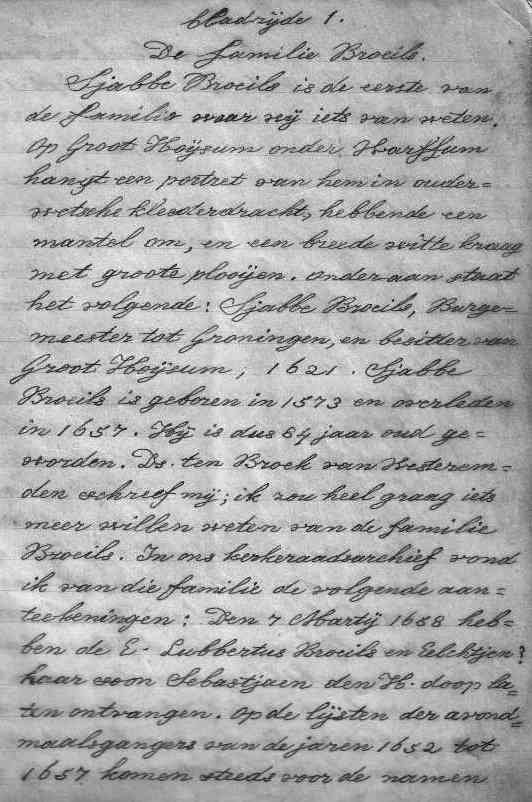 Bladzijde 1.
De familie Broeils.
Sjabbe Broeils is de eerste van
de familie waar wij iets van weten.
Op Groot Hoÿsum onder Warffum
hangt een portret van hem in ouder=
wetsche kleederdracht, hebbende een
mantel om, en een breede witte kraag
met groote plooijen. onder aan staat
het volgende: Sjabbe Broeils, Burge=
meester tot Groningen, en besitter van
Groot Hoÿsum, 1621. Sjabbe
Broeils is geboren in 1573 en overleden
in 1657. Hÿ is dus 84 jaar oud ge=
worden. Ds. ten Broek van Westerem=
den schreef mÿ; ik zou heel graag iets
meer willen weten van de familie
Broeils. In ons kerkeraadsarchief vond
ik van die familie de volgende aan=
teekeningen: Den 7 Martÿ 1658 heb=
ben de E. Lubbertus Broeils en Eelcktjen?
haar soon Sebastjaen den H. doop la=
ten ontvangen. Op de lÿsten der avond=
maalsgangers van de jaren 1652 tot
1657 komen steeds voor de namen